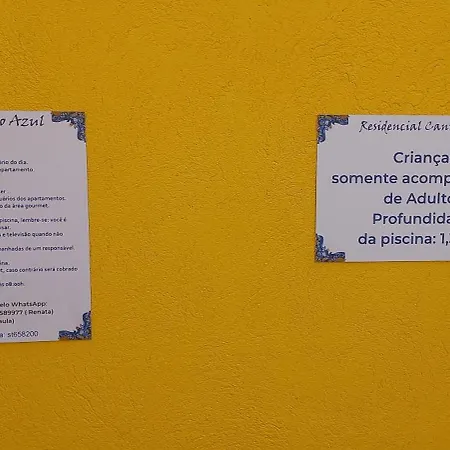 o Azul
ário do dia.
partamento
er
uários dos apartamentos.
o da área gourmet.
piscina, lembre-se: você é
sar.
s e televisão quando não
anhadas de um responsável
ina.
et, caso contrário será cobrado
s 08:00h.
elo WhatsApp:
589977 ( Renata)
aula)
a st658200
Residencial Can
Criança
somente acomp
de Adulto
Profundida
da piscina: 1,